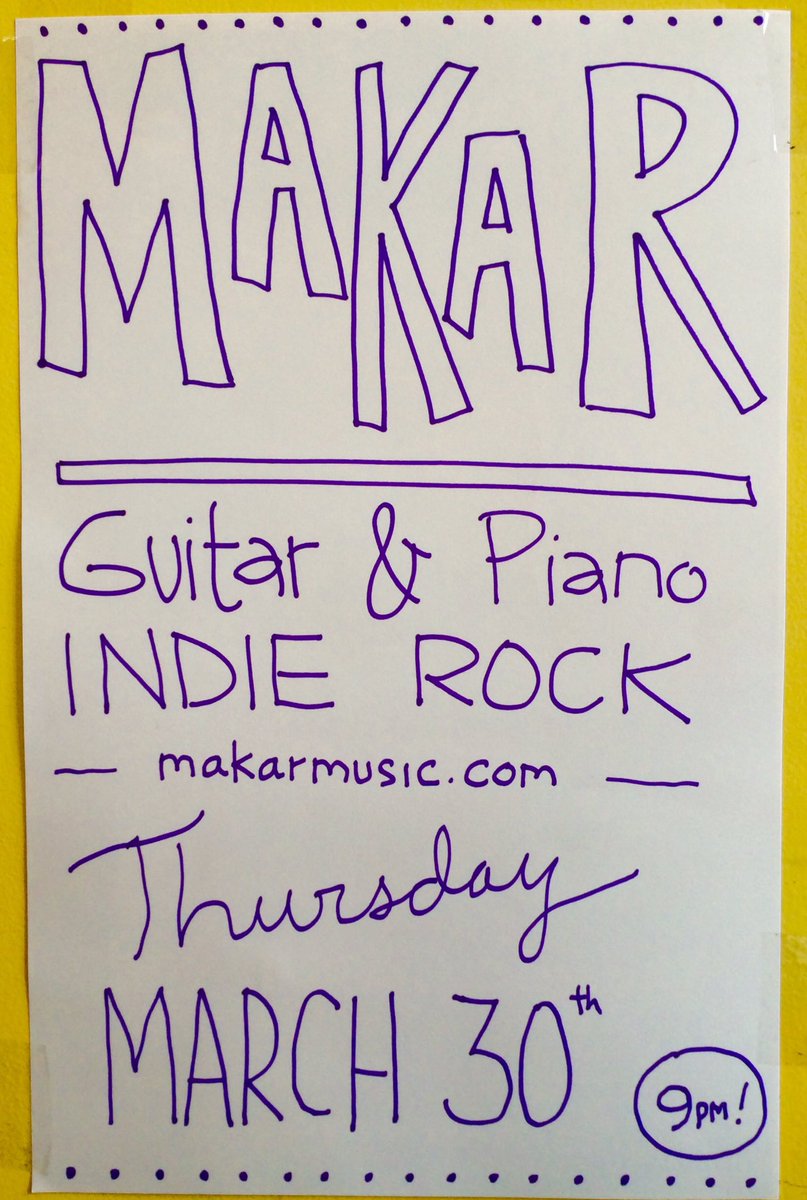 MAKAR
Guitar & Piano
INDIE ROCK
— makarmusic.com —
Thursday
MARCH 30th
9PM!